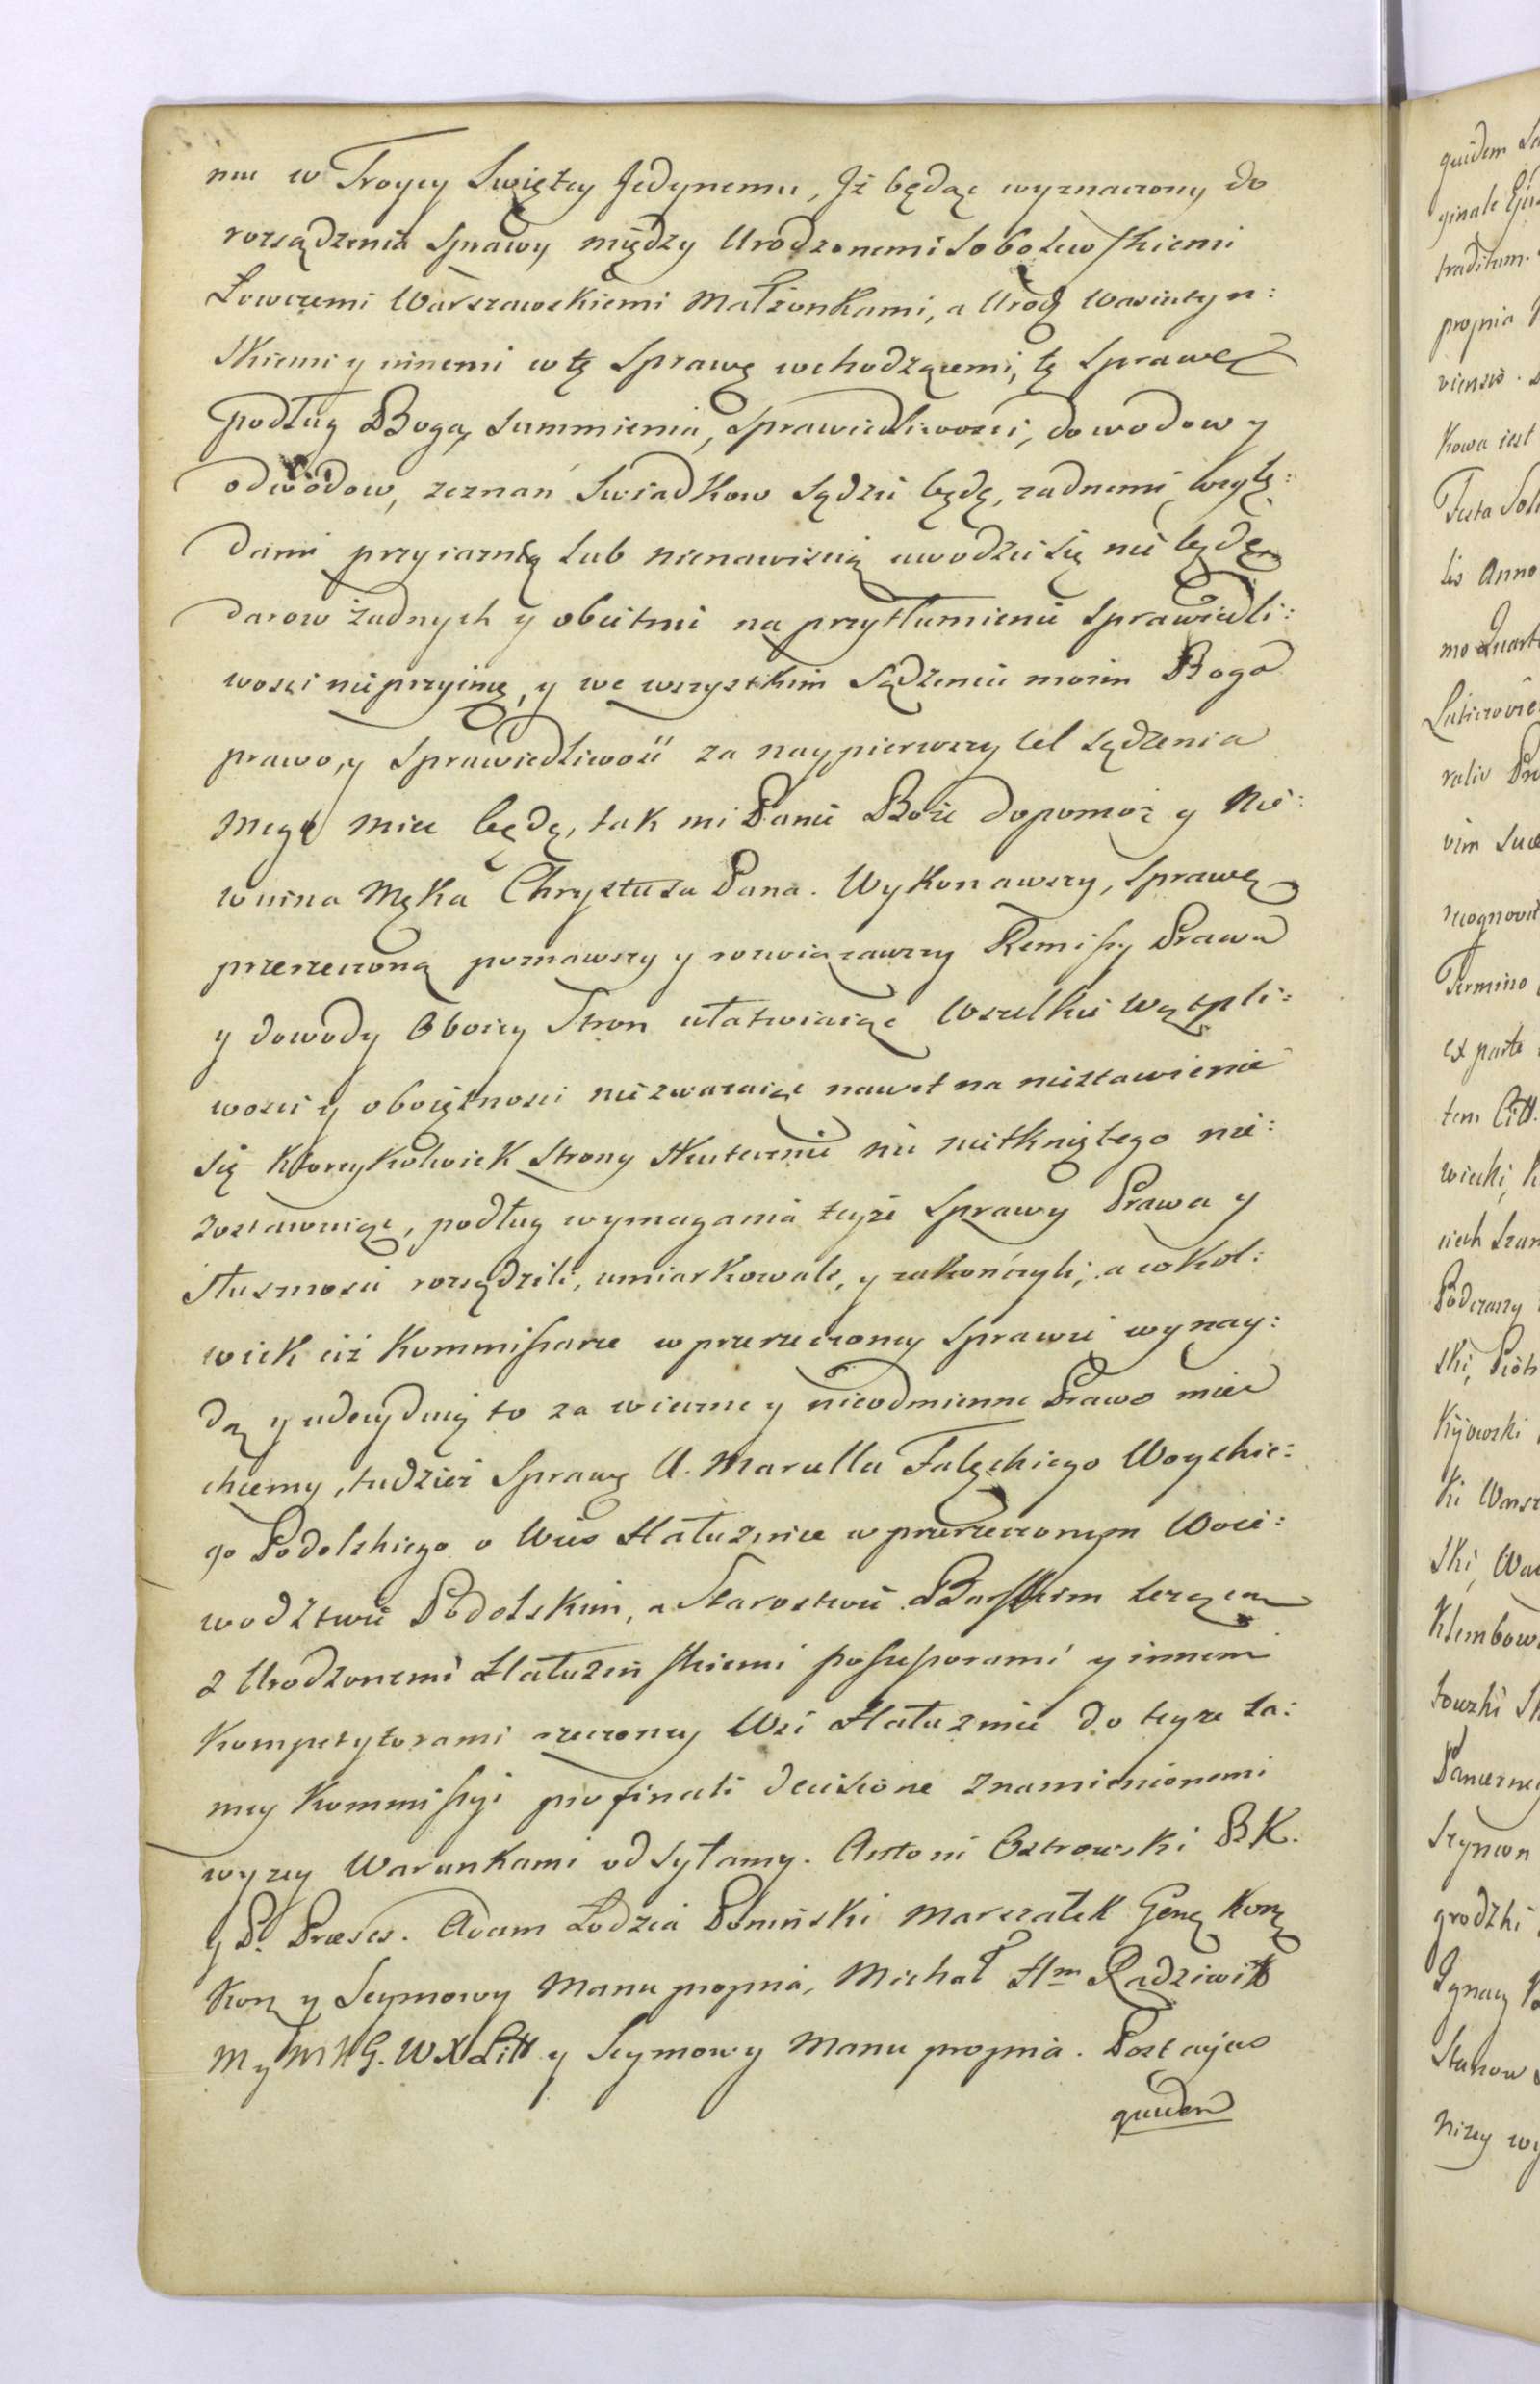 mu w Troycy Swiętey Jedynemu, Jż będąc wyznaczony do
rozsądzenia Sprawy między Urodzonemi Sobolewskiemi
Łowczemi Warszawskiemi Małżonkami, a Urodz Wasiutyn:
skiemi y innemi w tę Sprawę wchodzącemi, tę Sprawę
podług Boga, Summienia, Sprawiedliwosci, dowodow y
odwodow, zeznań Swiadkow Sądzić będę, zadnemi wzglę:
dami przyiaznią lub nienawiscią uwodzić się nie będę,
darow żadnych y obietnic na przytłumienie Sprawiedli:
wosci nie przyimę, y we wszystkim Sądzeniu moim Boga
prawo, y Sprawiedliwość za naypierwszy cel sądzenia
mego miec będę, tak mi Panie Boże dopomoż y Nie:
winna Męka Chrystusa Pana. Wykonawszy, Sprawę
przerzeczoną poznawszy y rozwiązawszy Remissy Prawa
y dowody Oboiey Stron ułatwiaiąc Wszelkie Wątpli:
wosci y oboiętnosci niezwazaiąc nawet na niestawienie
się ktoreykolwiek Strony Skutecznie nic nietkniętego nie:
zostawuiąc, podług wymagania teyże Sprawy Prawa y
słusznosci rozsądzili, umiarkowali, y zakończyli; a cokol:
wiek ciż Kommissarze w przerzeczoney Sprawie wynay:
dą y udecyduią to za wieczne y nieodmienne Prawo mieć
chcemy, tudzież Sprawę U. Marcella Falęckiego Woyskie:
go Podolskiego o Wieś Hałuzince w przerzeczonym Woie:
wodztwie Podolskim, a Starostwie Barskim leżącą
z Urodzonemi Hałuzińskiemi possessorami y innemi
Kompetytorami rzeczoney Wsi Hałuzince do teyze Sa:
mey Kommissyi pro finali decisione znamienionemi
wyzey Warunkami odsyłamy. Antoni Ostrowski B K.
y P. Præses. Adam Łodzia Poniński Marszałek Gene Konf
Kor y Seymowy Manu propria, Michał Hm Radziwiłł
M y M K G. W X Litt y Seymowy Manu propria. Post cujus
quidem